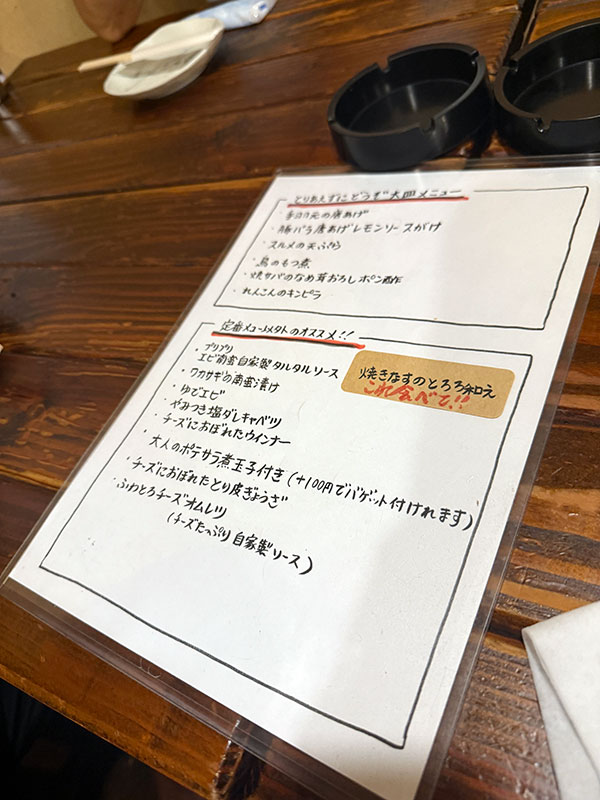 とりあえずにどうぞ 大皿メニュー
・手羽元の唐あげ
・豚バラ唐あげレモンソースがけ
・スルメの天ぷら
・鳥のもつ煮
・焼サバのなめ茸おろしポン酢
・れんこんのキンピラ
定番メニュー
・プリプリ
エビ南蛮自家製タルタルソース
・ワカサギの南蛮漬け
・ゆでエビ
・やみつき塩ダレキャベツ
・チーズにおぼれたウインナー
・大人のポテサラ煮玉子付き(+100円でバゲット付けれます)
・チーズにおぼれたとり皮ぎょうざ
・ふわとろチーズオムレツ
(チーズたっぷり自家製ソース)
焼きなすのとろろ和え
これ食べて!!